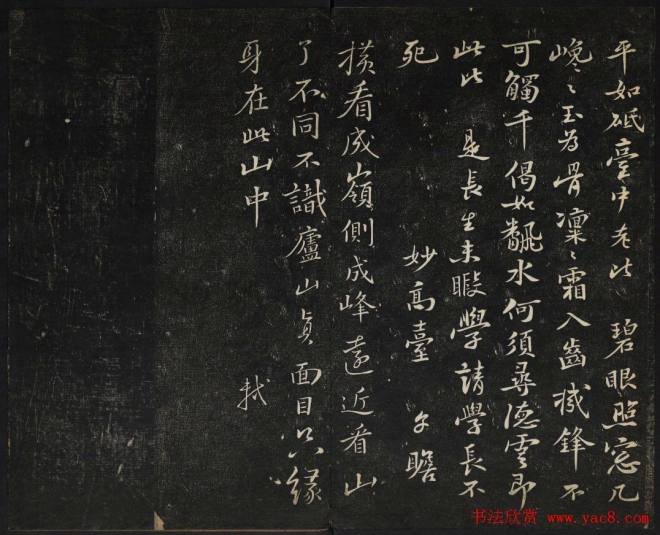 平如砥臺中老比 碧眼照窓几
巉〻玉為骨凜〻霜入齒機鋒不
可觸千偈如飜水何須尋德雲即
此比 是長生未暇學請學長不
死 妙高臺 子瞻
橫看成嶺側成峰遠近看山
了不同不識廬山真面目只緣
身在此山中 軾
书法欣赏 www.yac8.com